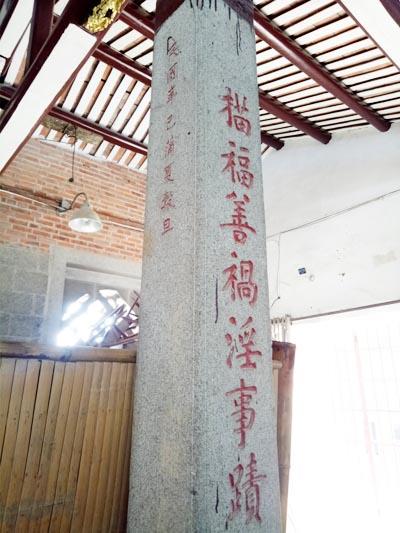 福善禍淫事蹟
癸酉年巳蒲夏穀旦